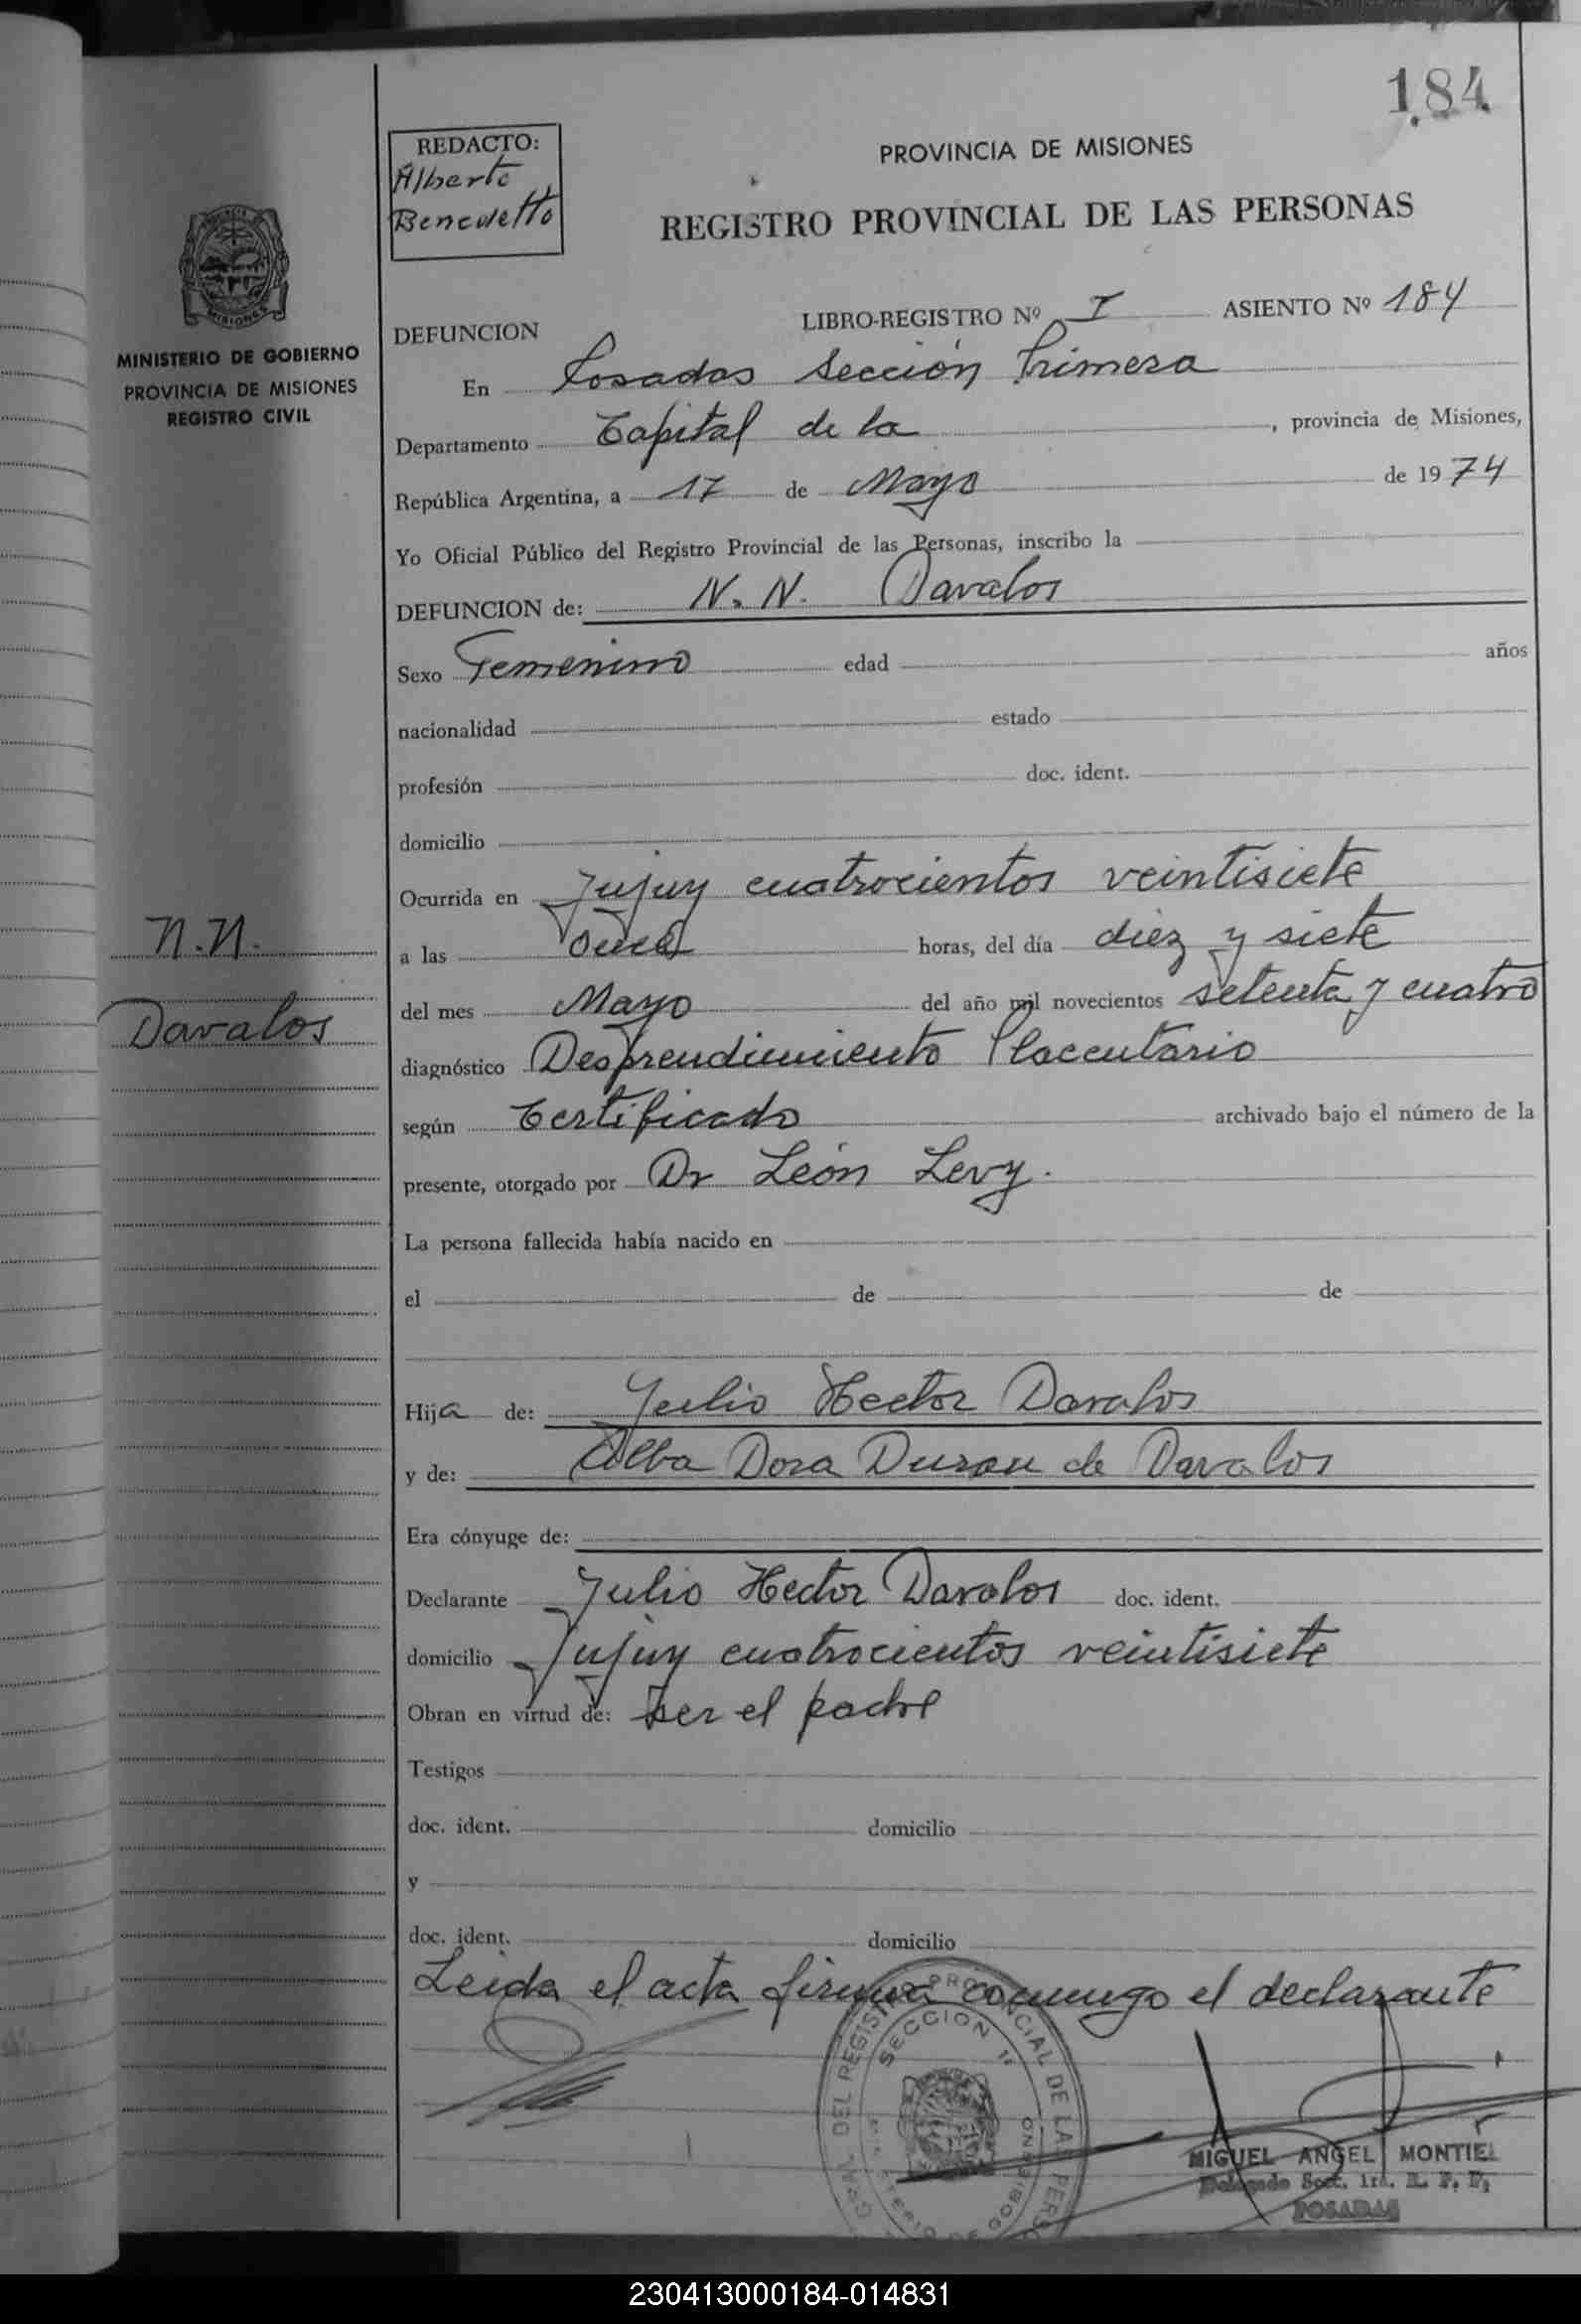 184
REDACTO:
Alberto
Benedetto
PROVINCIA DE MISIONES
REGISTRO PROVINCIAL DE LAS PERSONAS
MISIONES
MINISTERIO DE GOBIERNO
PROVINCIA DE MISIONES
REGISTRO CIVIL
DEFUNCION LIBRO-REGISTRO Nº I ASIENTO Nº 184
En Posadas Sección Primera
Departamento Capital de la , provincia de Misiones,
República Argentina, a 17 de Mayo de 1974
Yo Oficial Público del Registro Provincial de las Personas, inscribo la
DEFUNCION de: N. N. Davalos
Sexo Femenino edad años
nacionalidad estado
profesión doc. ident.
domicilio
Ocurrida en Jujuy cuatrocientos veintisiete
N.N.
a las once horas, del día diez y siete
Davalos
del mes Mayo del año mil novecientos setenta y cuatro
diagnóstico Desprendimiento Placentario
según Certificado archivado bajo el número de la
presente, otorgado por Dr León Levy.
La persona fallecida había nacido en
el de de
Hija de: Julio Hector Davalos
y de: Alba Dora Duran de Davalos
Era cónyuge de:
Declarante Julio Hector Davalos doc. ident.
domicilio Jujuy cuatrocientos veintisiete
Obran en virtud de: ser el padre
Testigos
doc. ident. domicilio
y
doc. ident. domicilio
Leida el acta firma conmigo el declarante
DEL REGISTRO PROVINCIAL DE LAS PERS
SECCION 1ª
DE GOBIERNO
MIGUEL ANGEL MONTIEL
Delegado Secc. 1ra. R. P. P.
POSADAS
230413000184-014831